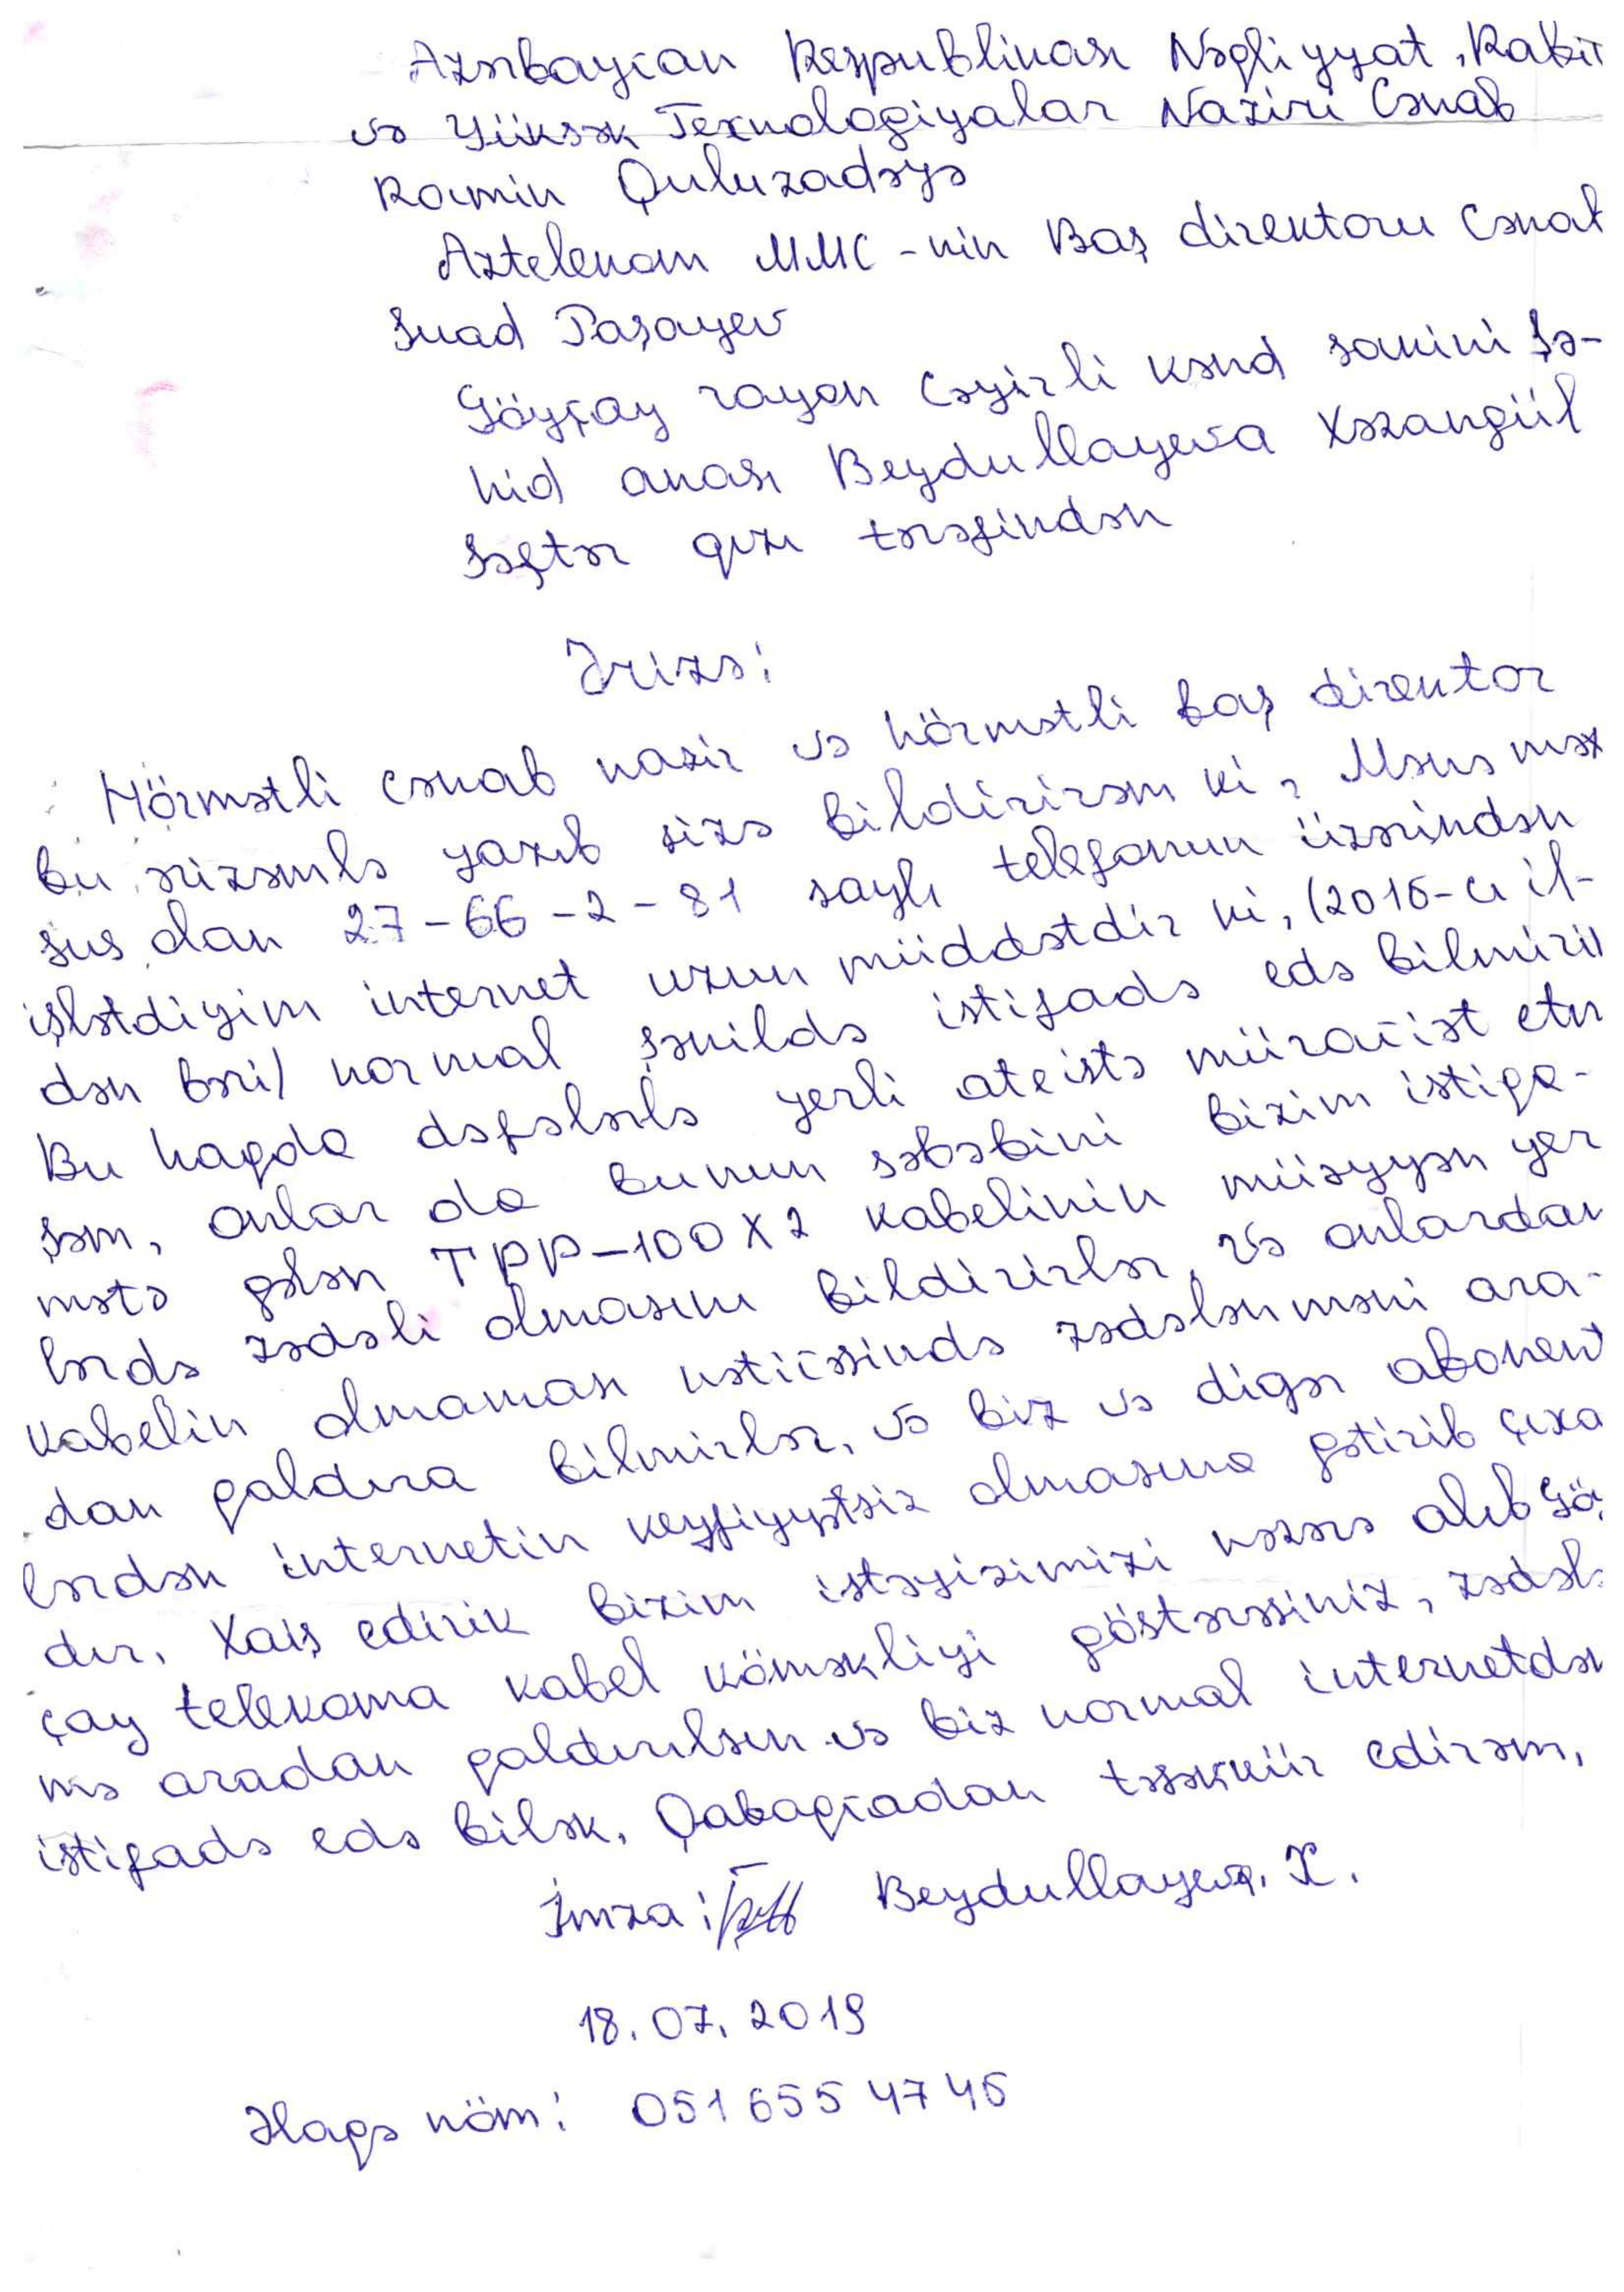 Azərbaycan Respublikası Nəqliyyat, Rabit
və Yüksək Texnologiyalar Naziri Cənab
Ramin Quluzadəyə
Aztelekom MMC-nin Baş direktoru Cənab
Suad Paşayev
Göyçay rayon Cəyirli kənd sakini Şə-
hid anası Beydullayeva Xəzangül
Səftər qızı tərəfindən
Ərizə:
Hörmətli cənab nazir və hörmətli baş direktor
bu ərizəmlə yazıb sizə bildirirəm ki, Mənə məx
sus olan 27-66-2-81 saylı telefonun üzərindən
işlətdiyim internet uzun müddətdir ki, (2016-cı il-
dən bəri) normal şəkildə istifadə edə bilmiri
Bu haqda dəfələrlə yerli ateistə müraciət etm
şəm, onlar da bunun səbəbini bizim istiqa-
mətə gələn TPP-100X2 kabelinin müəyyən yer
lərdə zədəli olmasını bildirirlər, və onlardan
kabelin olmaması nəticəsində zədələnməni ara-
dan qaldıra bilmirlər, və biz və digər abonent
lərdən internetin keyfiyyətsiz olmasına gətirib çıxa
dır. Xaiş edirik bizim istəyizimizi nəzərə alıb Gö
çay telekoma kabel köməkliyi göstərəsiniz, zədəl
mə aradan qaldırılsın və biz normal internetdən
istifadə edə bilək. Qabaqcadan təşəkkür edirəm,
İmza: Beydullayeva. X.
18.07.2019
Əlaqə nöm: 051 655 47 46